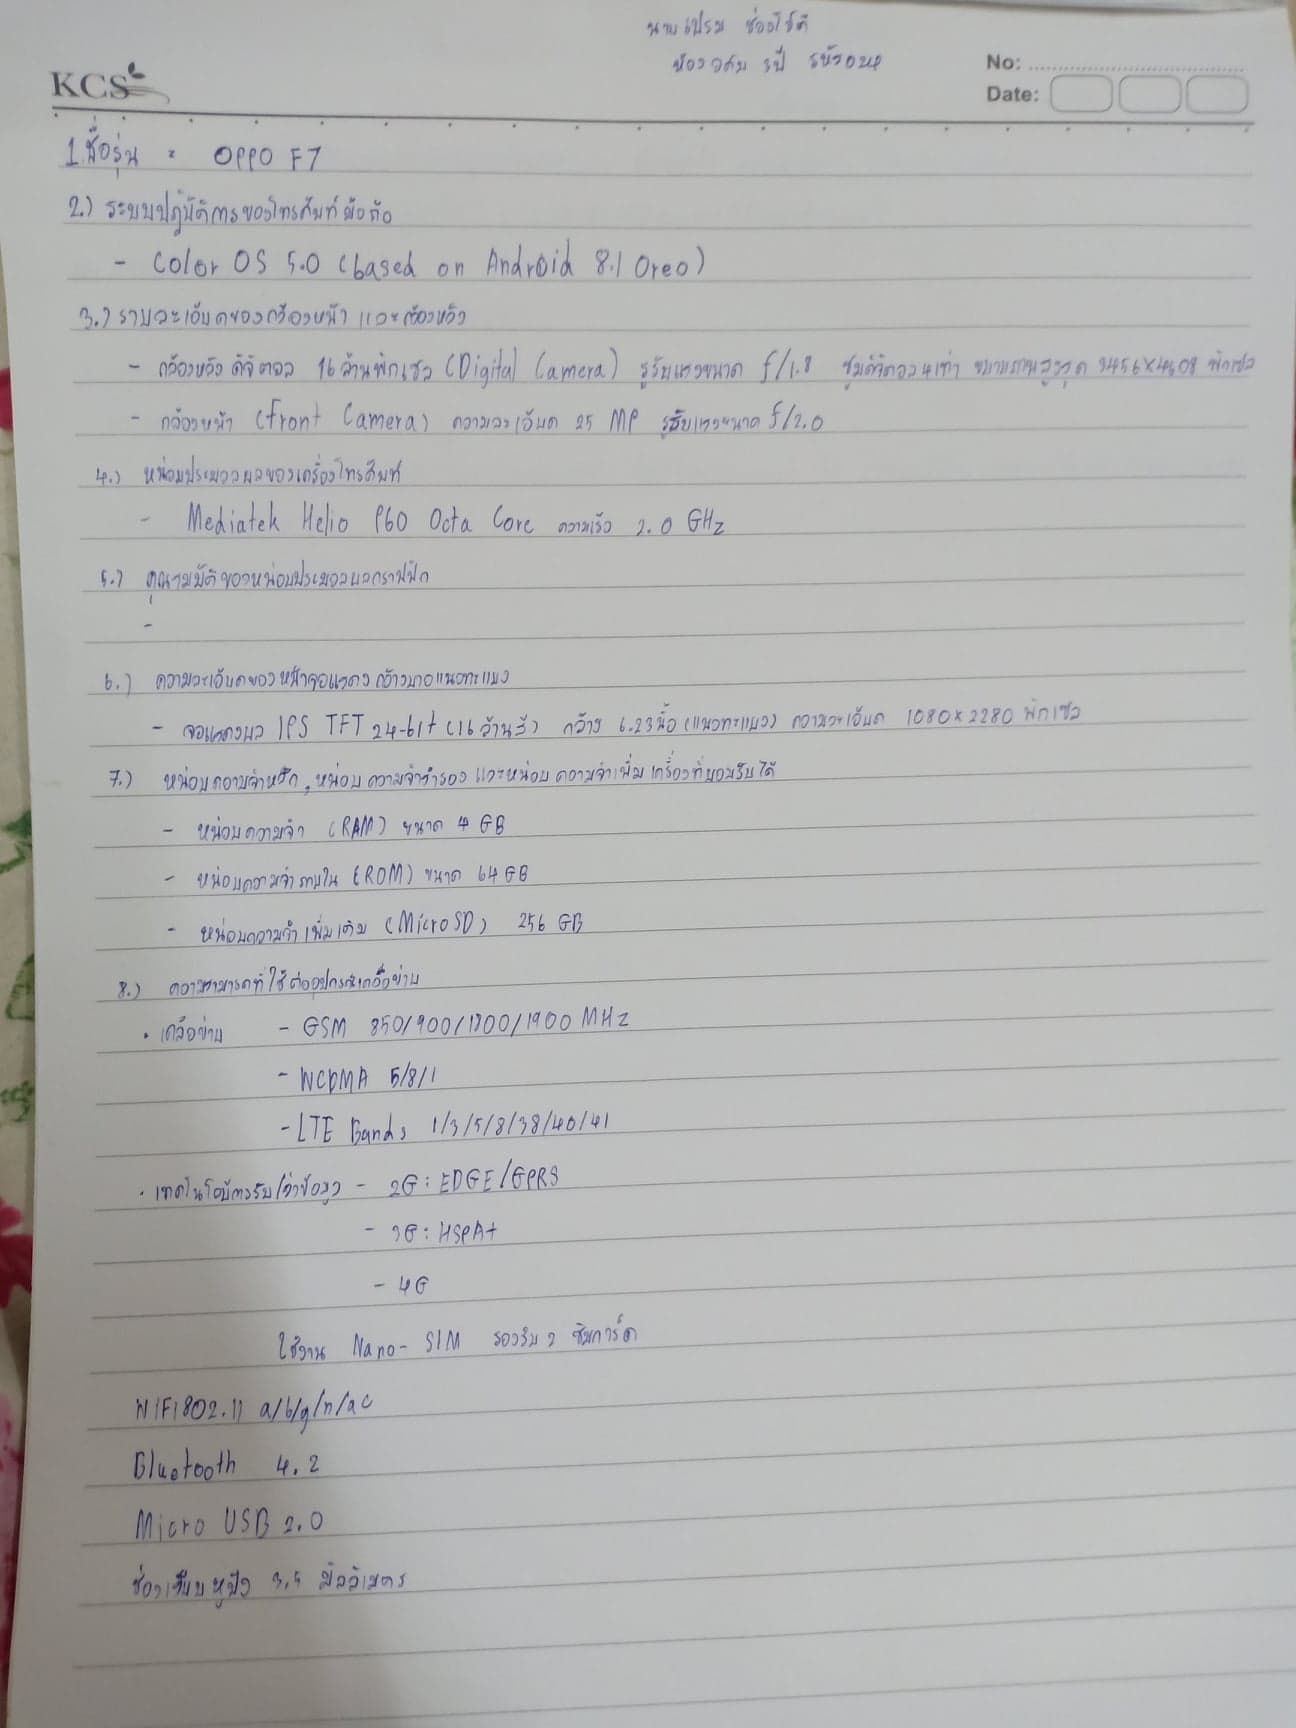 นายเปรม ช่องโชติ
ห้อง วสม 1ปี
KCS
No:
Date:
1.ชื่อรุ่น = OPPO F7
2.) ระบบปฏิบัติการของโทรศัพท์มือถือ
- Color OS 5.0 (based on Android 8.1 Oreo)
3.) รายละเอียดของกล้องหน้า และกล้องหลัง
- กล้องหลัง ดิจิตอล 16 ล้านพิกเซล (Digital Camera) รูรับแสงขนาด f/1.8 ซูมดิจิตอล 4 เท่า ขนาดภาพสูงสุด 3456×4608 พิกเซล
- กล้องหน้า (Front Camera) ความละเอียด 25 MP รูรับแสงขนาด f/2.0
4.) หน่วยประมวลผลของเครื่องโทรศัพท์
- Mediatek Helio P60 Octa Core ความเร็ว 2.0 GHz
5.) คุณสมบัติของหน่วยประมวลผลกราฟฟิก
-
6.) ความละเอียดของหน้าจอแสดง กว้างยาวแนวทะแยง
- จอแสดงผล IPS TFT 24-bit (16 ล้านสี) กว้าง 6.23 นิ้ว (แนวทะแยง) ความละเอียด 1080×2280 พิกเซล
7.) หน่วยความจำหลัก, หน่วยความจำสำรอง และหน่วยความจำเพิ่ม เครื่องที่ยอมรับได้
- หน่วยความจำ (RAM) ขนาด 4 GB
- หน่วยความจำภายใน (ROM) ขนาด 64 GB
- หน่วยความจำเพิ่มเติม (MicroSD) 256 GB
8.) ความสามารถที่ใช้ต่ออุปกรณ์เครือข่าย
• เครือข่าย - GSM 850/900/1800/1900 MHz
- WCDMA 5/8/1
- LTE Bands 1/3/5/8/38/40/41
• เทคโนโลยีการรับ/ส่งข้อมูล - 2G: EDGE/GPRS
- 3G: HSPA+
- 4G
ใช้งาน Nano-SIM รองรับ 2 ซิมการ์ด
WIFI802.11 a/b/g/n/ac
Bluetooth 4.2
Micro USB 2.0
ช่องเสียบหูฟัง 3.5 มิลลิเมตร